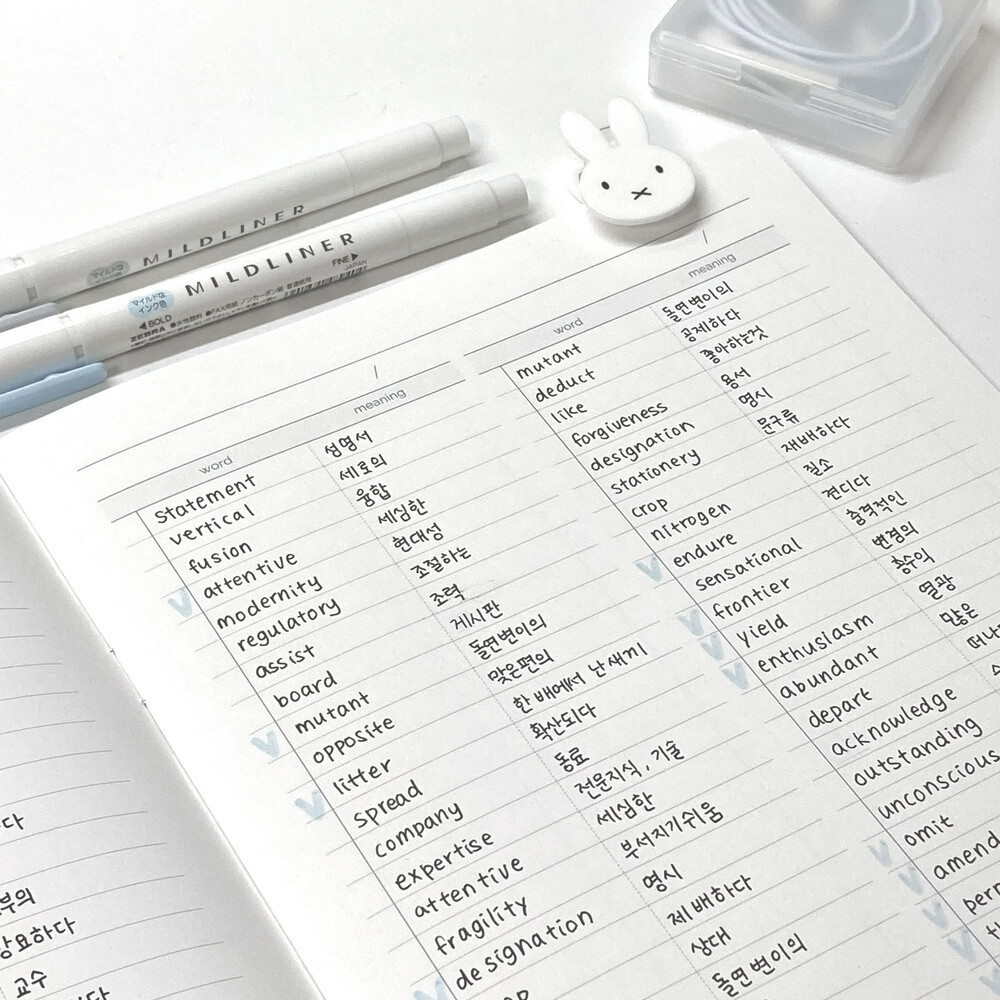 MILDLINER
マイルドな
インク色
MILDLINER
FINE▶
JAPAN
◀BOLD
ZEBRA ●水性顔料 ●PAX用紙 ノンカーボン紙 普通紙用
/
word meaning
statement 성명서
vertical 세로의
fusion 융합
attentive 세심한
modernity 현대성
regulatory 조절하는
assist 조력
board 게시판
mutant 돌연변이의
opposite 맞은편의
litter 한 배에서 난 새끼
spread 확산되다
company 동료
expertise 전문지식, 기술
attentive 세심한
fragility 부서지기쉬움
designation 명시
제배하다
상대
돌연변이의
/
word meaning
mutant 돌연변이의
deduct 공제하다
like 좋아하는것
forgiveness 용서
designation 명시
stationery 문구류
crop 재배하다
nitrogen 질소
endure 견디다
sensational 충격적인
frontier 변경의
yield
enthusiasm 열광
abundant 많은
depart
acknowledge
outstanding
unconscious
omit
amend
강요하다
교수